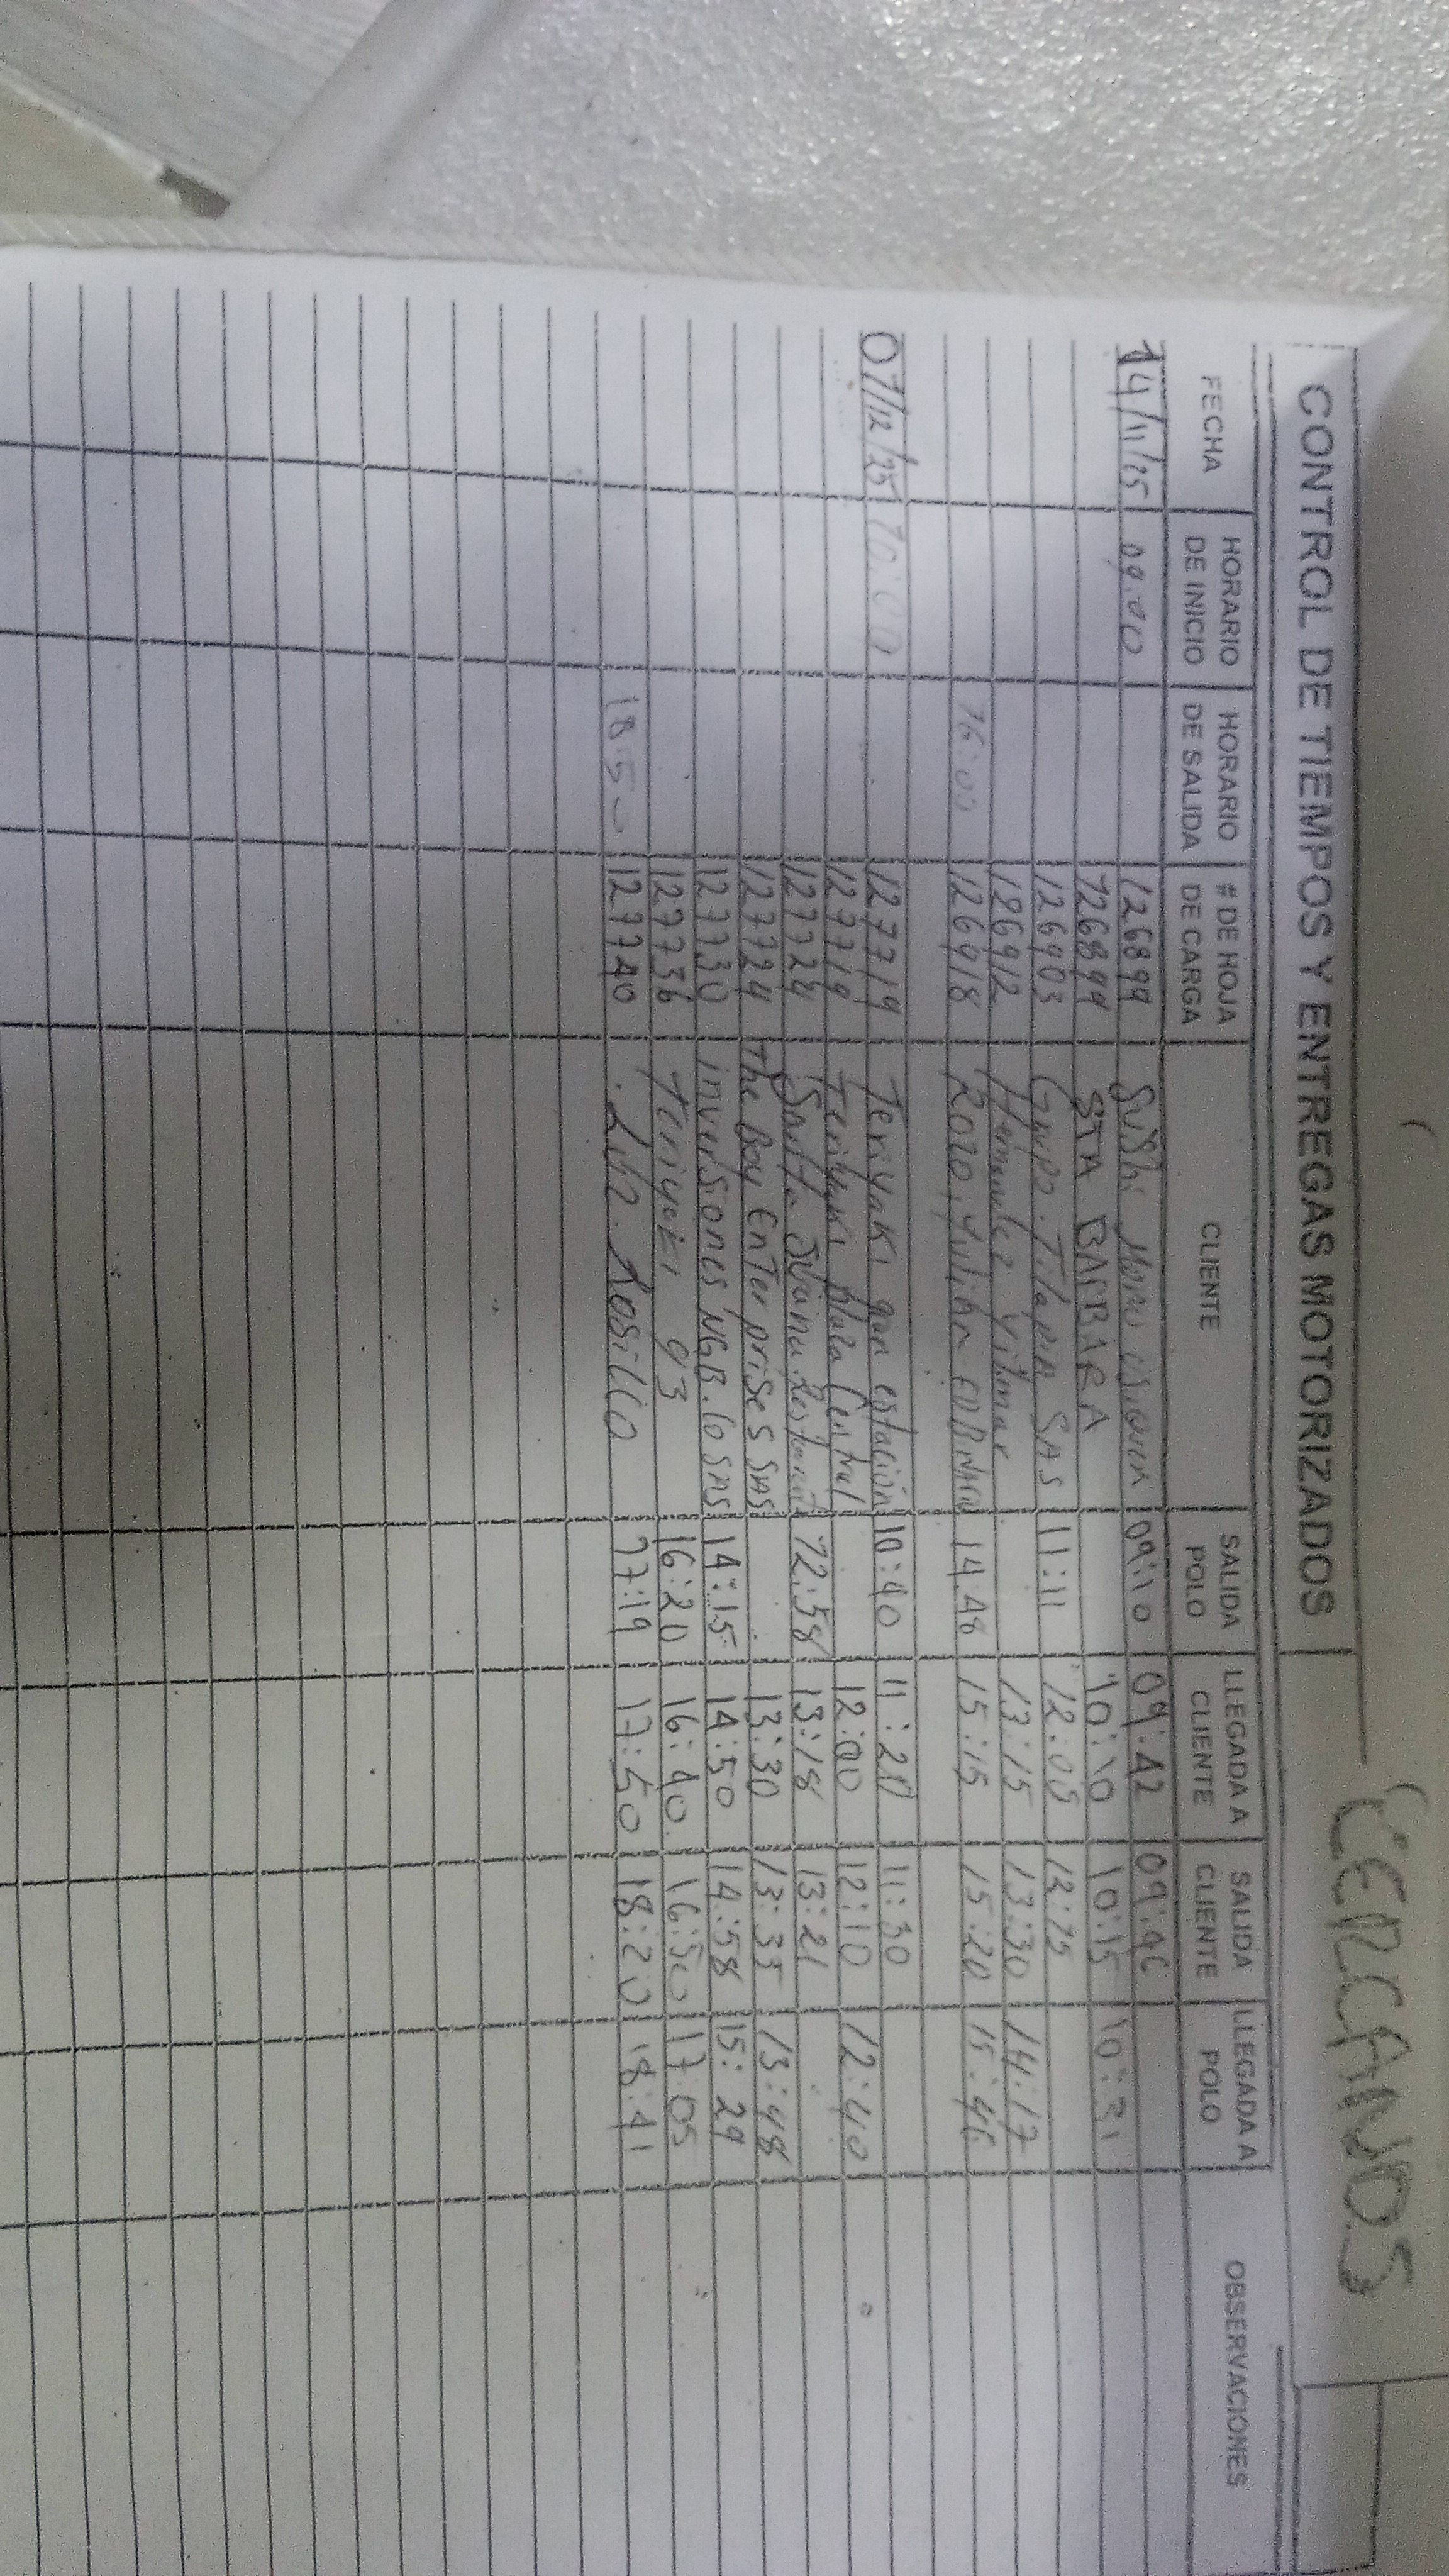 CERCANOS
CONTROL DE TIEMPOS Y ENTREGAS MOTORIZADOS
FECHA HORARIO DE INICIO HORARIO DE SALIDA # DE HOJA DE CARGA CLIENTE SALIDA POLO LLEGADA A CLIENTE SALIDA CLIENTE LLEGADA A POLO OBSERVACIONES
14/11/25 09:00 126899 Sushi 09:10 09:42 09:46
126899 STA BARBARA 10:10 10:15 10:31
126903 Grupo Tilapia SAS 11:11 12:05
126912 Hernandez Vilmar 13:15 13:30 14:17
16:00 126918 Rozo, Yulihn 14.48 15:15 15:20 15:46
07/12/25 10:00 127719 Teriyaki gran estación 10:40 11:20 11:30
127719 Teriyaki plaza Central 12:00 12:10 12:40
127724 12:58 13:18 13:21
127724 The Box EnTerpriseS SAS 13:30 13:35 13:48
127730 inverSiones NGB.Co SAS 14:15 14:50 14:58 15:29
127736 Teriyaki 93 16:20 16:40 16:50 17:05
127740 17:19 17:50 18:20 18:41